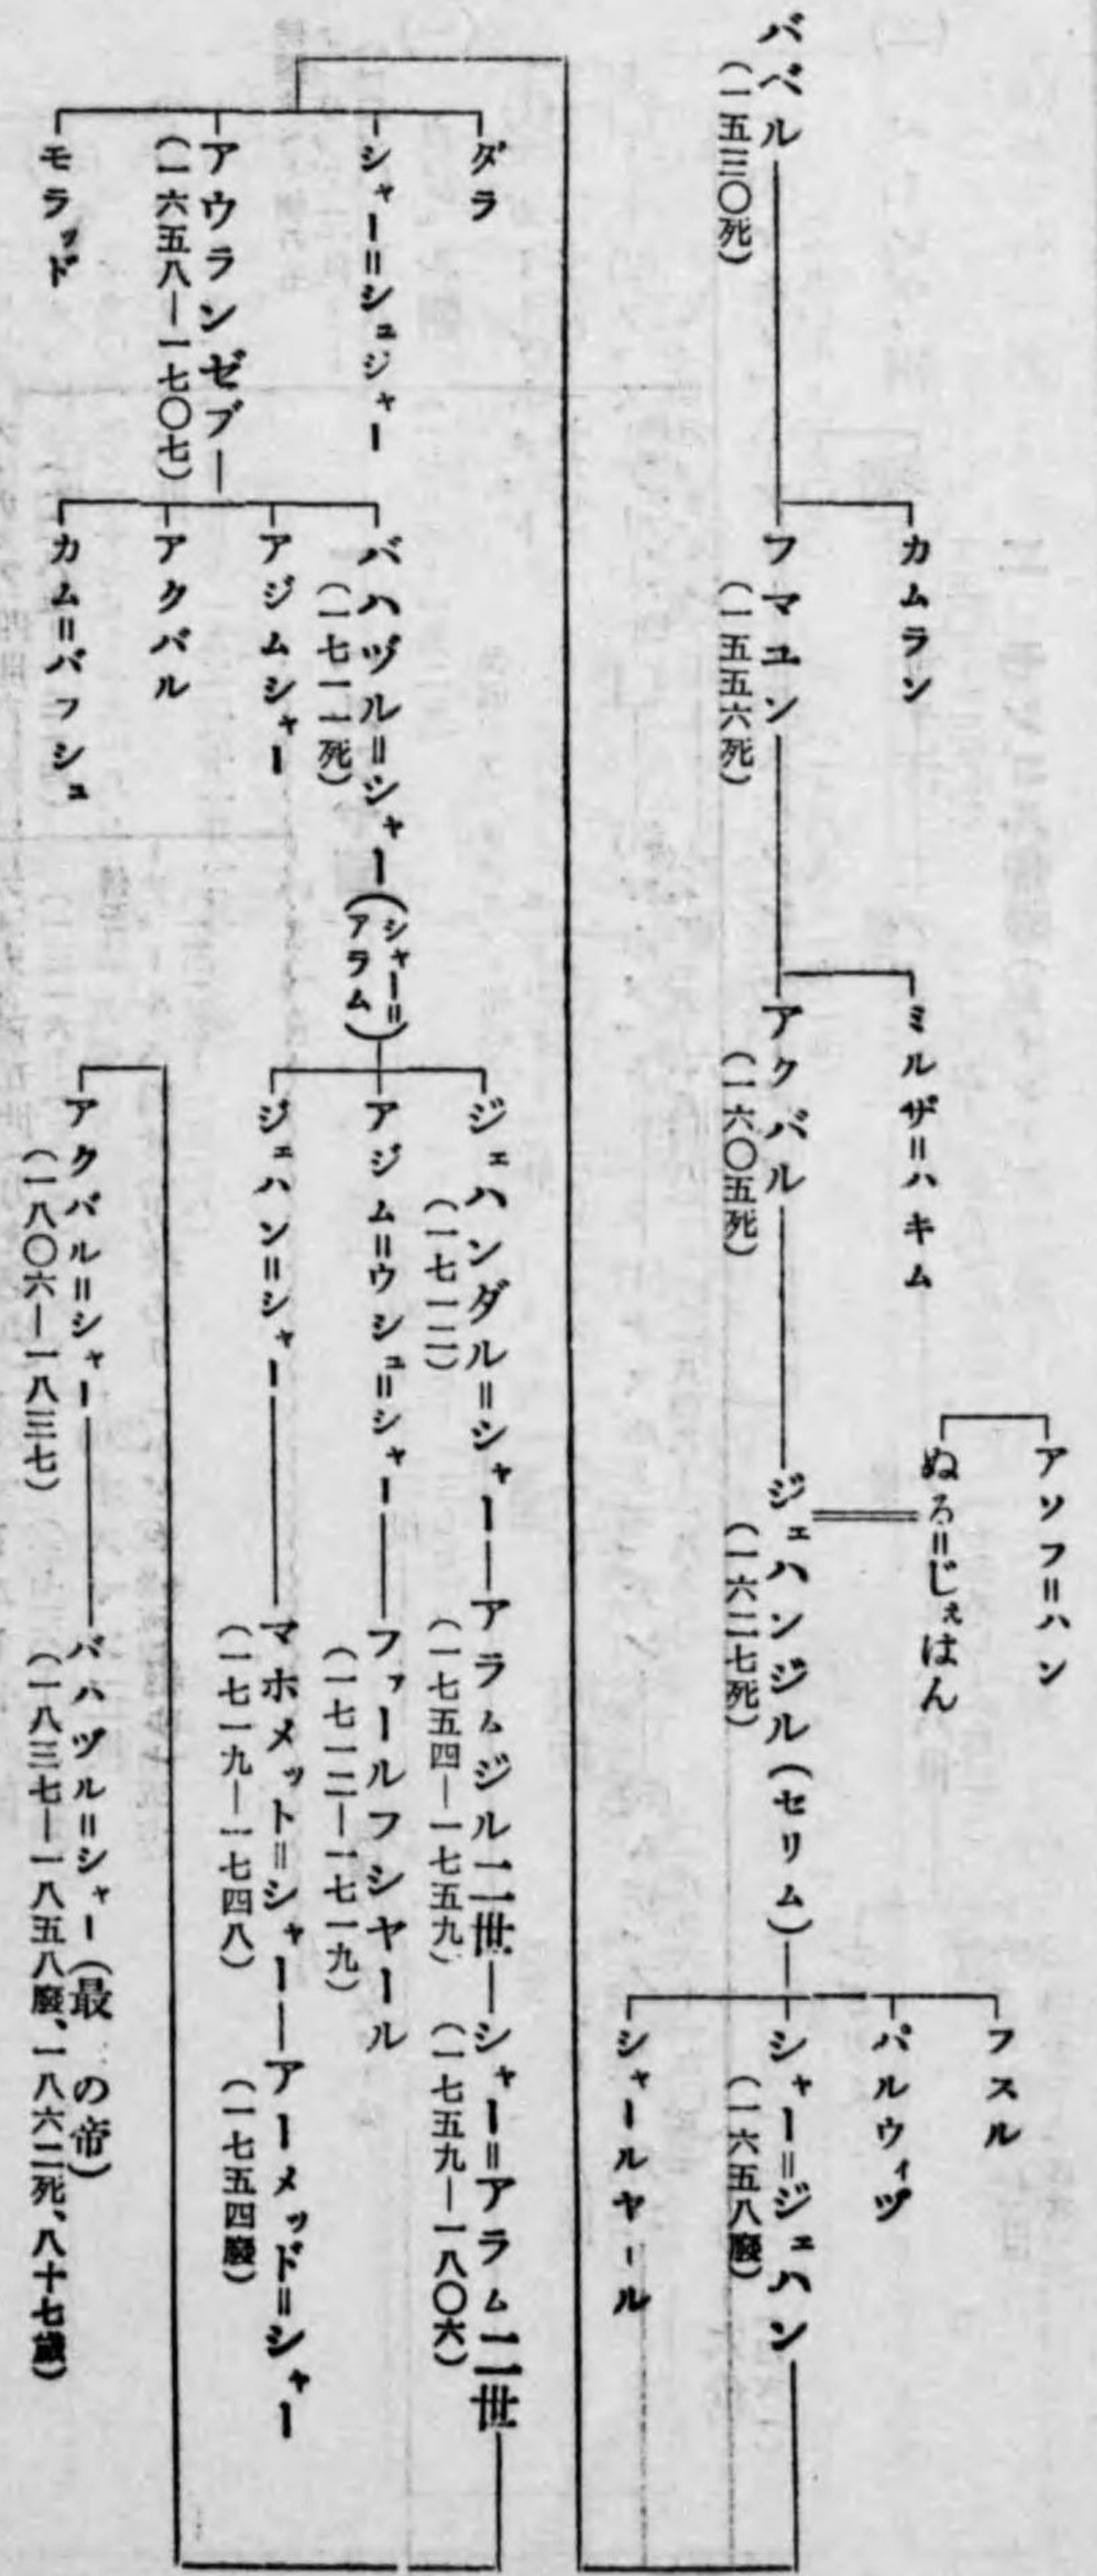 アソフ＝ハン
ぬろ＝じぇはん
カムラン
ミルザ＝ハキム
フスル
パルウィヅ
バベル
(一五三〇死)
フマユン
(一五五六死)
アクバル
(一六〇五死)
ジェハンジル(セリム)
(一六二七死)
シャー＝ジェハン
(一六五八廢)
シャールヤール
ダラ
シャー＝シュジャー
アウランゼブ
(一六五八—一七〇七)
モラッド
バハヅル＝シャー(シャー＝アラム)
(一七一二死)
アジムシャー
アクバル
カム＝バフシュ
ジェハンダル＝シャー
(一七一二)
アラムジル二世
(一七五四—一七五九)
シャー＝アラム二世
(一七五九—一八〇六)
アジム＝ウシュ＝シャー
ファールフシヤール
(一七一二—一七一九)
ジェハン＝シャー
マホメット＝シャー
(一七一九—一七四八)
アーメッド＝シャー
(一七五四廢)
アクバル＝シャー
(一八〇六—一八三七)
バハヅル＝シャー(最 の帝)
(一八三七—一八五八廢、一八六二死、八十七歲)